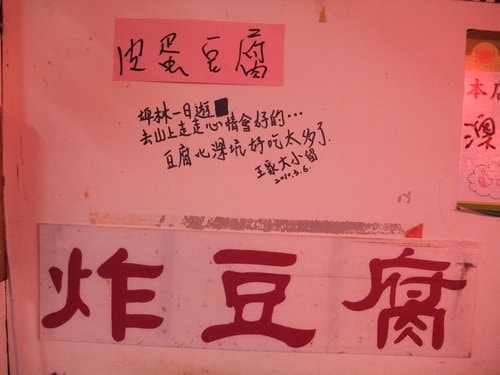 皮蛋豆腐
坪林一日遊
去山上走走心情會好的...
豆腐比深坑好吃太多了
王家大小留
2010.3.6.
本店
深
炸豆腐